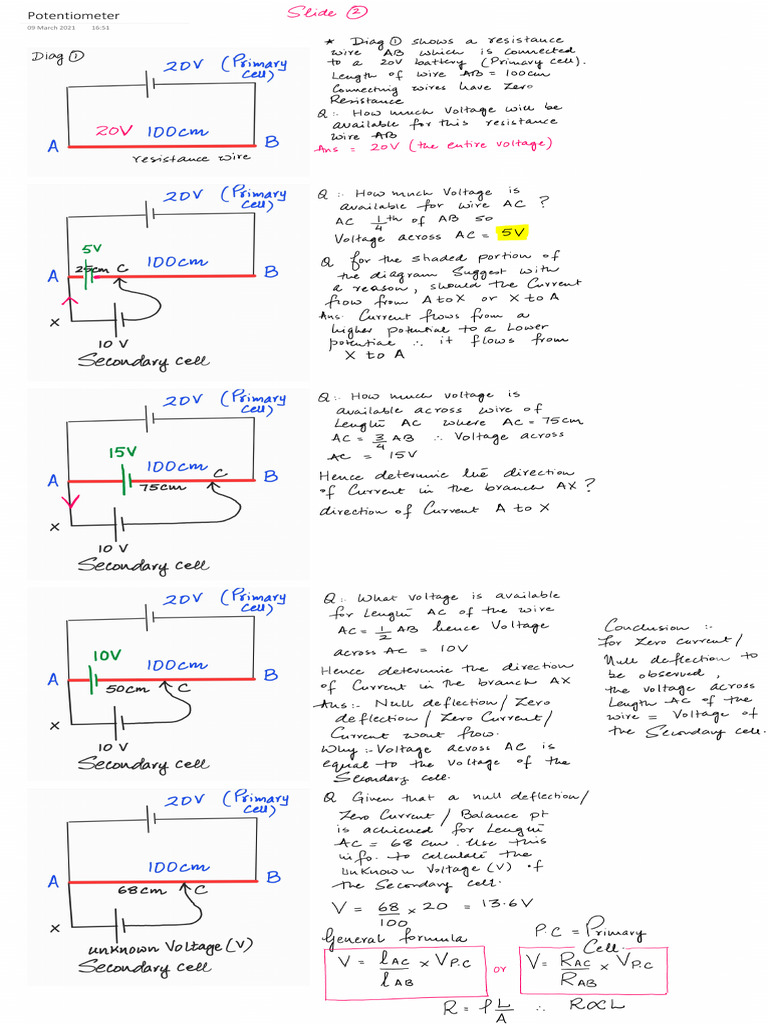 Potentiometer
09 March 2021 16:51
Slide ②
Diag ①
20V (Primary
Cell)
20V 100cm
A B
resistance wire
* Diag ① shows a resistance
wire AB which is connected
to a 20V battery (Primary cell).
Length of wire AB = 100cm
Connecting wires have Zero
Resistance
Q:- How much Voltage will be
available for this resistance
wire AB
Ans = 20V (the entire voltage)
20V (Primary
Cell)
5V
100cm
A 25cm C B
X
10 V
Secondary cell
Q :- How much Voltage is
available for wire AC ?
AC 1/4 th of AB so
Voltage across AC = 5V
Q for the shaded portion of
the diagram Suggest with
a reason, should the Current
flow from A to X or X to A
Ans. Current flows from a
higher potential to a Lower
potential ∴ it flows from
X to A
20V (Primary
Cell)
15V
100cm
A 75cm C B
X
10 V
Secondary cell
Q :- How much voltage is
available across wire of
Length AC where AC = 75cm
AC = 3/4 AB ∴ Voltage across
AC = 15V
Hence determine the direction
of Current in the branch AX ?
direction of Current A to X
20V (Primary
Cell)
10V
100cm
A 50cm C B
X
10 V
Secondary cell
Q :- What voltage is available
for Length AC of the wire
AC = 1/2 AB hence Voltage
across AC = 10V
Hence determine the direction
of Current in the branch AX
Ans:- Null deflection/Zero
deflection/Zero Current/
Current wont flow.
Why :- Voltage across AC is
equal to the voltage of the
Secondary cell.
Conclusion :-
For Zero current/
Null deflection to
be observed,
the voltage across
Length AC of the
wire = Voltage of
the Secondary cell.
20V (Primary
Cell)
100cm
A 68cm C B
X
unknown Voltage (V)
Secondary cell
Q Given that a null deflection/
Zero Current / Balance pt
is achieved for Length
AC = 68 cm. Use this
info. to calculate the
unknown Voltage (V) of
the Secondary cell.
V = 68/100 × 20 = 13.6V
General formula
P.C = Primary
Cell.
V = lAC/lAB × VP.C or V = RAC/RAB × VP.C
R = ρL/A ∴ R∝L